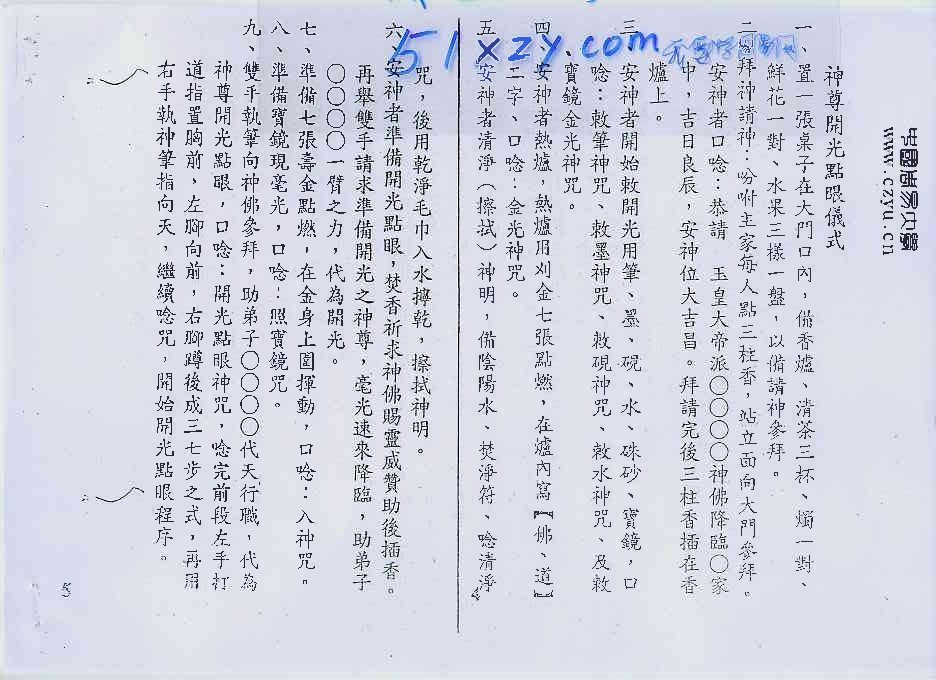 51xzy.com
中國易
www.czyu.cn
神尊開光點眼儀式
一、置一張桌子在大門口內，備香爐、清茶三杯、燭一對、
鮮花一對、水果三樣一盤，以備請神參拜。
二、拜神請神：吩咐主家每人點三柱香，站立面向大門參拜。
安神者口唸：恭請　玉皇大帝派〇〇〇〇神佛降臨〇家
中，吉日良辰，安神位大吉昌。拜請完後三柱香插在香
爐上。
三、安神者開始敕開光用筆、墨、硯、水、硃砂、寶鏡，口
唸：敕筆神咒、敕墨神咒、敕硯神咒、敕水神咒、及敕
寶鏡金光神咒。
四、安神者熱爐，熱爐用刈金七張點燃，在爐內寫『佛、道』
二字、口唸：金光神咒。
五、安神者清淨（擦拭）神明，備陰陽水、焚淨符、唸清淨
4
咒，後用乾淨毛巾入水擰乾，擦拭神明。
六、安神者準備開光點眼，焚香祈求神佛賜靈威贊助後插香。
再舉雙手請求準備開光之神尊，毫光速來降臨，助弟子
〇〇〇〇一臂之力，代為開光。
七、準備七張壽金點燃，在金身上圍揮動，口唸：入神咒。
八、準備寶鏡現毫光，口唸：照寶鏡咒。
九、雙手執筆向神佛參拜，助弟子〇〇〇〇代天行職，代為
神尊開光點眼，口唸：開光點眼神咒，唸完前段左手打
道指置胸前，左腳向前，右腳蹲後成三七步之式，再用
右手執神筆指向天，繼續唸咒，開始開光點眼程序。
5